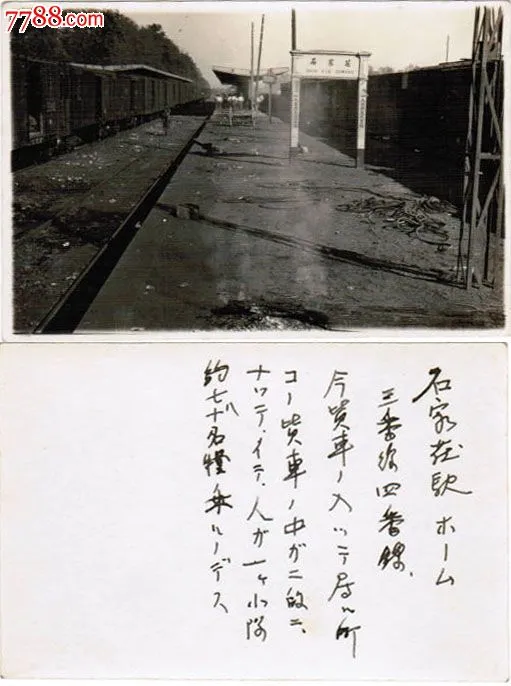 7788.com
石家莊
石家荘駅 ホーム
三番線四番線、
今貨車ノ入ツテ居ル所
コノ貨車ノ中ガ二段ニ、
ナツテイテ、人ガ一ケ小隊
約七八十名程乗ルノデス